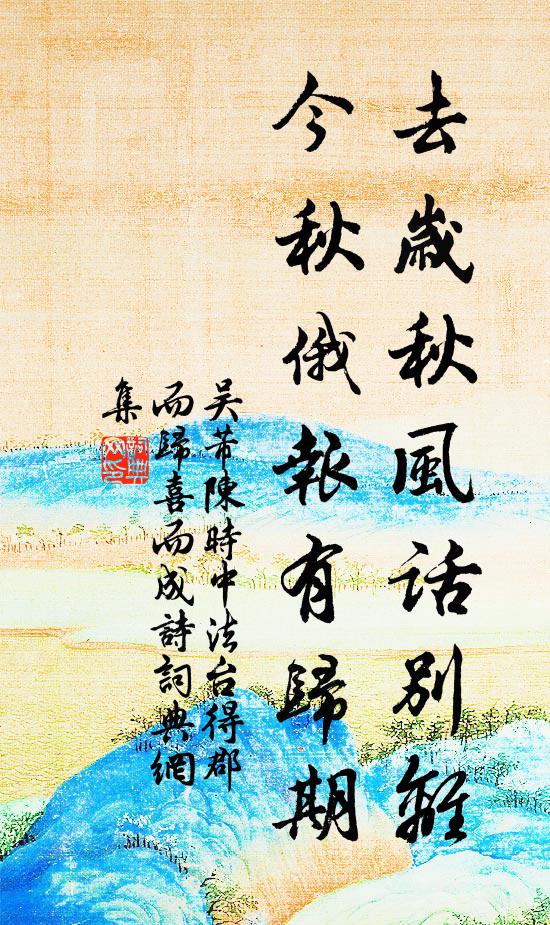 去歲秋風話別離
今秋俄報有歸期
吴芾陳時中法台得郡
而歸喜而成詩詞典網
集